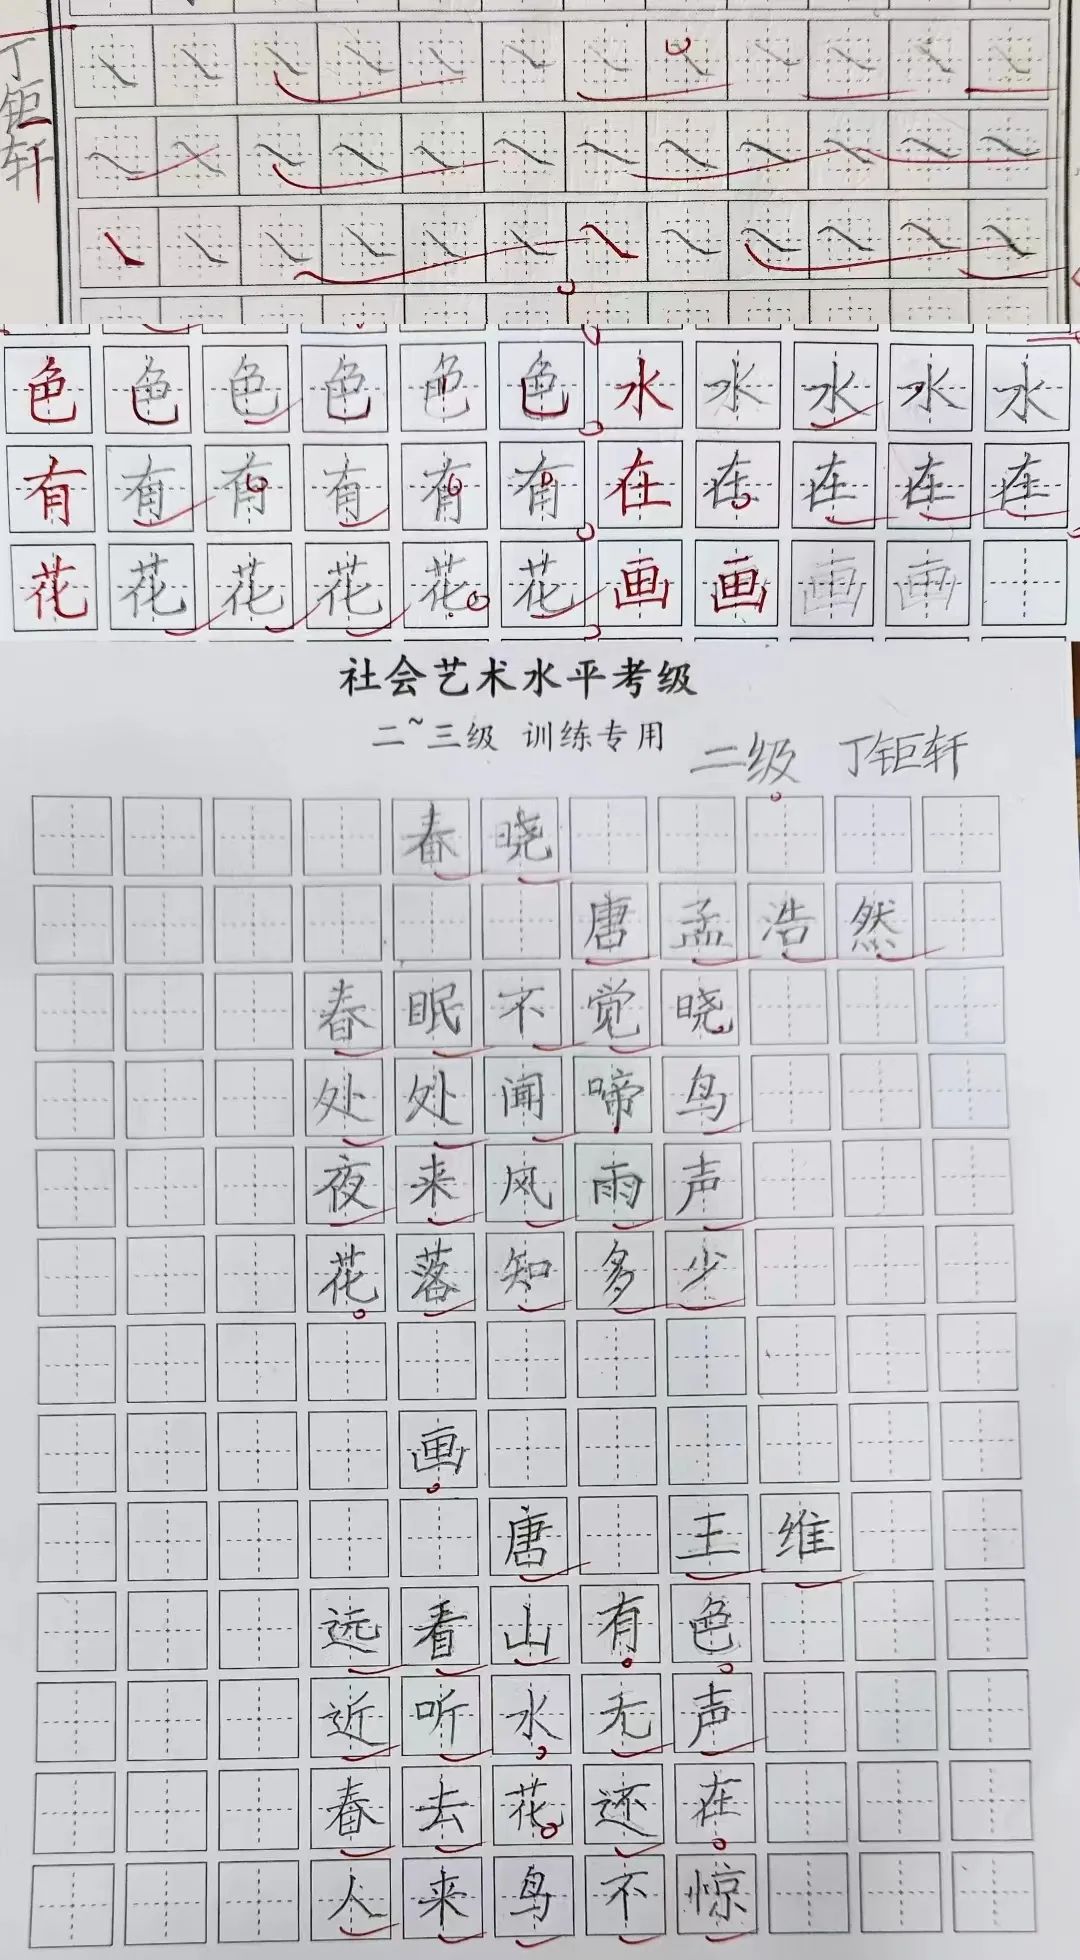 丁钜轩
色色色色色色水水水水水
有有有有有有在在在在在
花花花花花花画画画画
社会艺术水平考级
二~三级 训练专用 二级 丁钜轩
春晓
唐 孟浩然
春眠不觉晓
处处闻啼鸟
夜来风雨声
花落知多少
画
唐 王维
远看山有色
近听水无声
春去花还在
人来鸟不惊